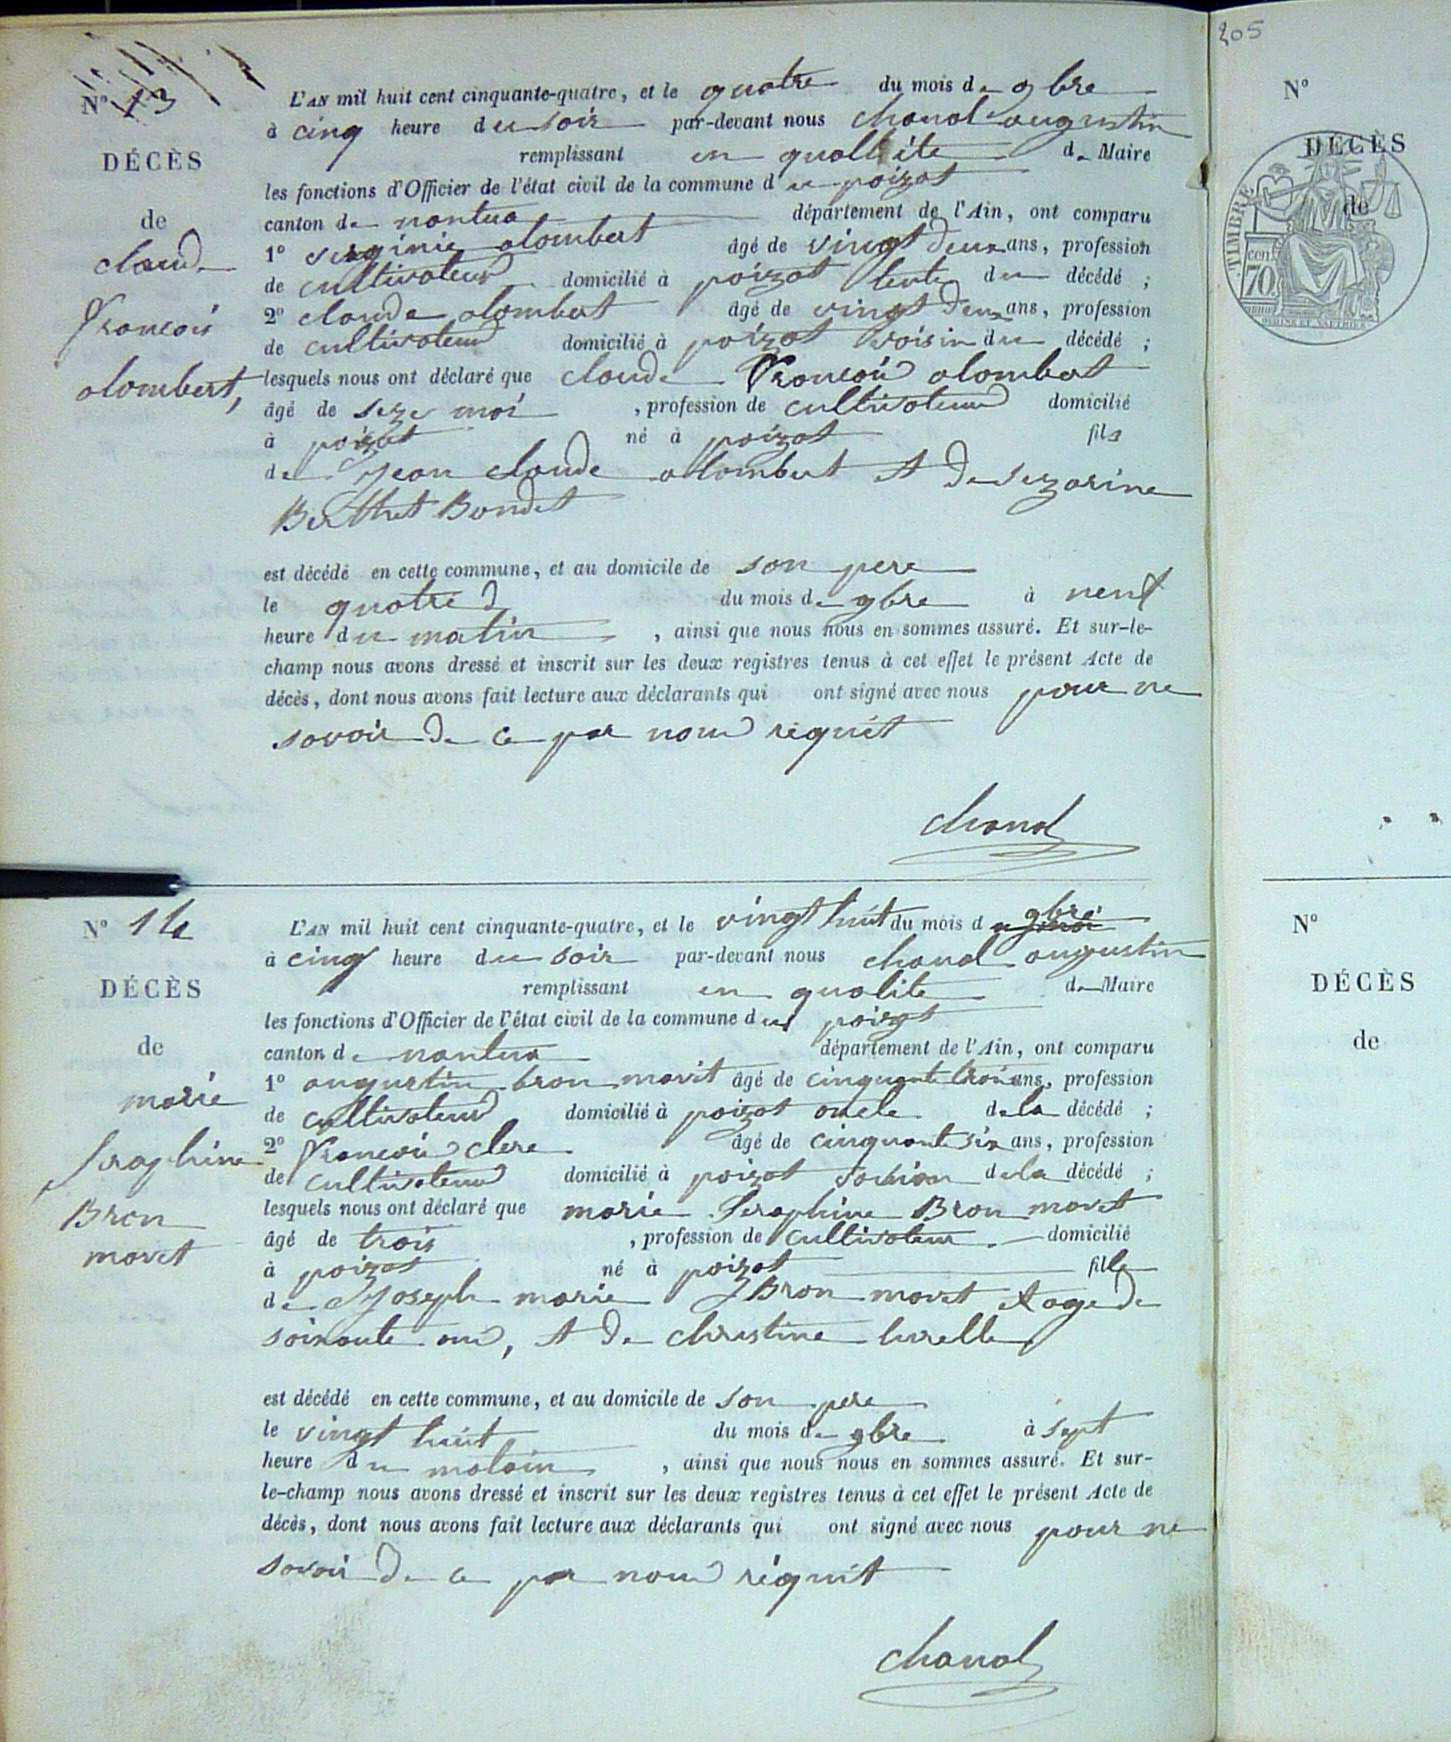 205
N° 13
DÉCÈS
de
claude
françois
alombert,
L'AN mil huit cent cinquante-quatre, et le quatre du mois de 9bre
à cinq heure du soir par-devant nous chanal augustin
remplissant en quallite de Maire
les fonctions d'Officier de l'état civil de la commune du poizat
canton de nantua département de l'Ain, ont comparu
1° virginie alombert âgé de vingt deux ans, profession
de cultivateur domicilié à poizat tente du décédé ;
2° claude alombert âgé de vingt deux ans, profession
de cultivateur domicilié à poizat voisin du décédé ;
lesquels nous ont déclaré que claude françois alombert
âgé de seze moi , profession de cultivateur domicilié
à poizat né à poizat fils
de jean claude alombert et de sezarine
Berthet Bondet
est décédé en cette commune, et au domicile de son pere
le quatre du mois de 9bre à neuf
heure du matin , ainsi que nous nous en sommes assuré. Et sur-le-
champ nous avons dressé et inscrit sur les deux registres tenus à cet effet le présent Acte de
décès, dont nous avons fait lecture aux déclarants qui ont signé avec nous pour ne
savoir de ce par nous requit
chanal
N° 14
DÉCÈS
de
marie
Seraphine
Bron
moret
L'AN mil huit cent cinquante-quatre, et le vingt huit du mois de 9bre
à cinq heure du soir par-devant nous chanal augustin
remplissant en qualite de Maire
les fonctions d'Officier de l'état civil de la commune du poizat
canton de nantua département de l'Ain, ont comparu
1° augustin bron moret âgé de cinquante trois ans, profession
de cultivateur domicilié à poizat oncle de la décédé ;
2° françois clerc âgé de cinquante six ans, profession
de cultivateur domicilié à poizat de la décédé ;
lesquels nous ont déclaré que marie Seraphine Bron moret
âgé de trois , profession de cultivateur domicilié
à poizat né à poizat fille
de Joseph marie Bron moret et age de
soixante ans, et de christine
est décédé en cette commune, et au domicile de son pere
le vingt huit du mois de 9bre à sept
heure du matain , ainsi que nous nous en sommes assuré. Et sur-
le-champ nous avons dressé et inscrit sur les deux registres tenus à cet effet le présent Acte de
décès, dont nous avons fait lecture aux déclarants qui ont signé avec nous pour ne
savoir de ce par nous réquit
chanal
N°
DÉCÈS
de
TIMBRE
cent
70
N°
DÉCÈS
de